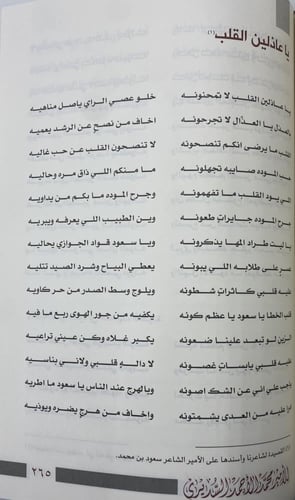 يا عاذلين القلب (١)
يا عاذلين القلب لا تمحنونه
خلو عصي الراي ياصل مناهيه
يا العذال لا تجرحونه
اخاف من نصح عن الرشد يعميه
ما يرضى انكم تنصحونه
لا تنصحون القلب عن حب غاليه
الموده صايبه تجهلونه
ما منكم اللي ذاق مره وحاليه
اللي يود القلب ما تفهمونه
وجرح الموده ما بكم من يداويه
الموده جايرات طعونه
وين الطبيب اللي يعرفه ويبريه
يا ليت طراد المها يذكرونه
ويا سعود قواد الجوازي يحاليه
على طلابه اللي يبونه
يعطي البياح وشرد الصيد تتليه
قلبي كاثرات شطونه
ويلوج وسط الصدر من حر كاويه
قلب الخطا يا سعود يا عظم كونه
يكفيه من جور الهوى ربع ما فيه
لو تبعد علينا ضعونه
يكبر غلاه وكن عيني تراعيه
قلبي يابسات غصونه
لا دالهٍ قلبي ولاني بناسيه
اني عن الشك اصونه
ويالهرج عند الناس يا سعود ما اطريه
عليه من العدى يشمتونه
واخاف من هرجٍ يضره ويوذيه
(١) القصيدة لشاعرنا وأسندها على الأمير الشاعر سعود بن محمد.
٢٦٥